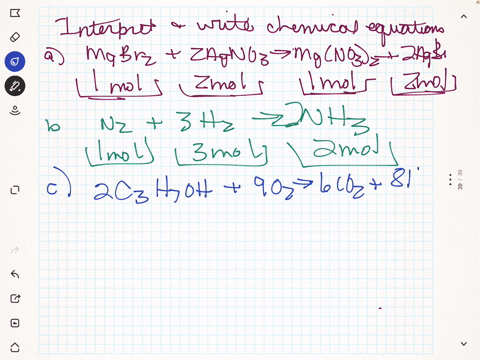 Interpret & write chemical equations
a) MgBr₂ + 2AgNO₃ → Mg(NO₃)₂ + 2AgBr
1 mol 2mol 1mol 2mol
b N₂ + 3H₂ → 2NH₃
1mol 3mol 2mol
c) 2C₃H₇OH + 9O₂ → 6CO₂ + 8